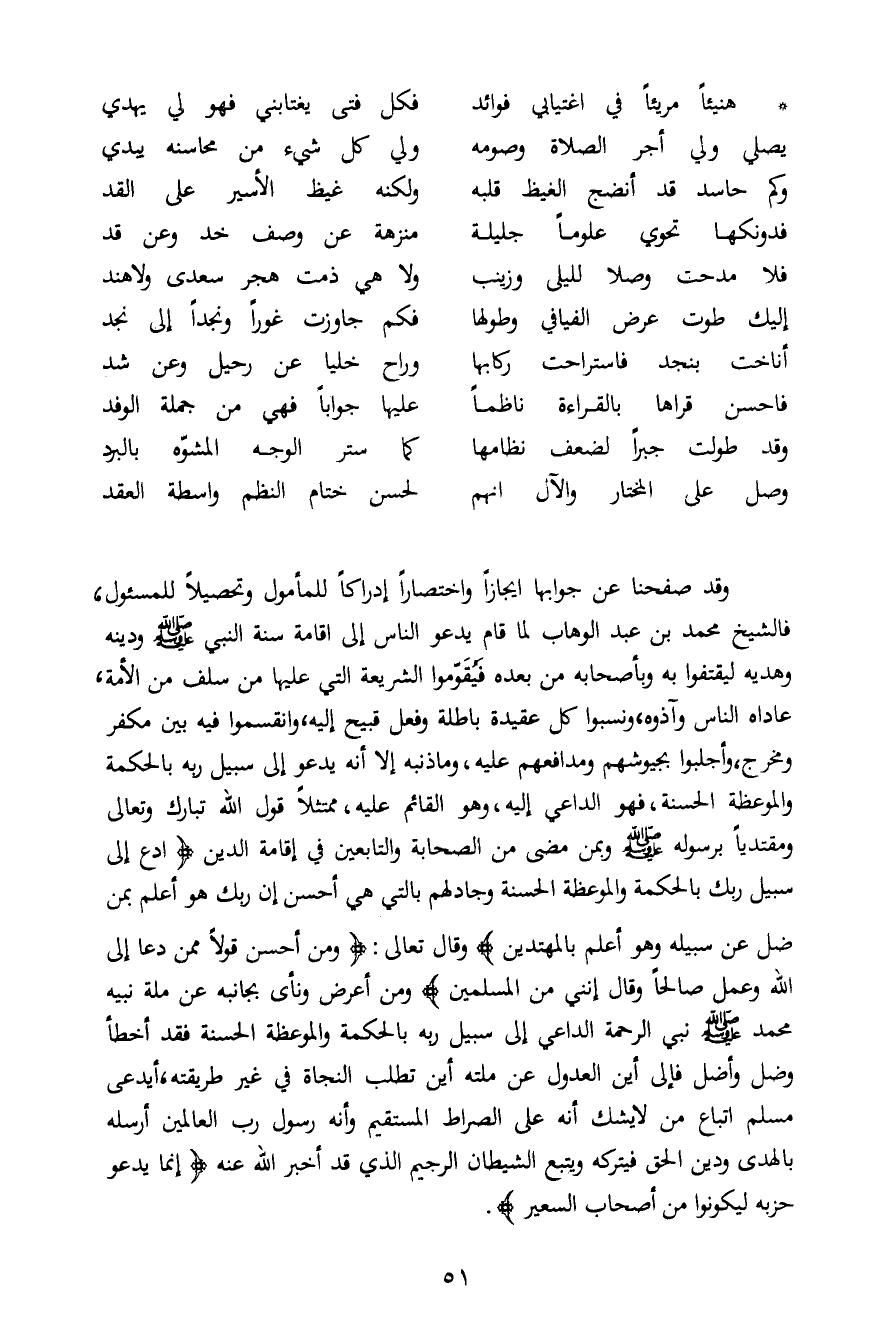 * هنيئاً مريئاً في اغتيابي فوائد فكل فتى يغتابني فهو لي يهدي
يصلي ولي أجر الصلاة وصومه ولي كل شيء من محاسنه يبدي
وكم حاسد قد أنضج الغيظ قلبه ولكنه غيظ الأسير على القد
فدونكها تحوي علوماً جليلة منزهة عن وصف خد وعن قد
فلا مدحت وصلا لليلى وزينب ولا هي ذمت هجر سعدى ولاهند
إليك طوت عرض الفيافي وطولها فكم جاوزت غوراً ونجداً إلى نجد
أناخت بنجد فاستراحت ركابها وراح خليا عن رحيل وعن شد
فاحسن قراها بالقراءة ناظماً عليها جواباً فهي من جملة الوفد
وقد طولت جبراً لضعف نظامها كما ستر الوجه المشوّه بالبرد
وصل على المختار والآل انهم لحسن ختام النظم واسطة العقد
وقد صفحنا عن جوابها ايجازاً واختصاراً إدراكاً للمأمول وتحصيلاً للمسئول،
فالشيخ محمد بن عبد الوهاب لما قام يدعو الناس إلى اقامة سنة النبي ﷺ ودينه
وهديه ليقتفوا به وبأصحابه من بعده فَيُقَوّموا الشريعة التي عليها من سلف من الأمة،
عاداه الناس وآذوه،ونسبوا كل عقيدة باطلة وفعل قبيح إليه،وانقسموا فيه بين مكفر
ومخرج،وأجلبوا بجيوشهم ومدافعهم عليه،وماذنبه إلا أنه يدعو إلى سبيل ربه بالحكمة
والموعظة الحسنة، فهو الداعي إليه،وهو القائم عليه، ممتثلاً قول الله تبارك وتعالى
ومقتدياً برسوله ﷺ وبمن مضى من الصحابة والتابعين في إقامة الدين ﴿ ادع إلى
سبيل ربك بالحكمة والموعظة الحسنة وجادلهم بالتي هي أحسن إن ربك هو أعلم بمن
ضل عن سبيله وهو أعلم بالمهتدين ﴾ وقال تعالى: ﴿ ومن أحسن قولاً ممن دعا إلى
الله وعمل صالحاً وقال إنني من المسلمين ﴾ ومن أعرض ونأى بجانبه عن ملة نبيه
محمد ﷺ نبي الرحمة الداعي إلى سبيل ربه بالحكمة والموعظة الحسنة فقد أخطأ
وضل وأضل فإلى أين العدول عن ملته أين تطلب النجاة في غير طريقته،أيدعى
مسلم اتباع من لايشك أنه على الصراط المستقيم وأنه رسول رب العالمين أرسله
بالهدى ودين الحق فيتركه ويتبع الشيطان الرجيم الذي قد أخبر الله عنه ﴿ إنما يدعو
حزبه ليكونوا من أصحاب السعير ﴾.
٥١